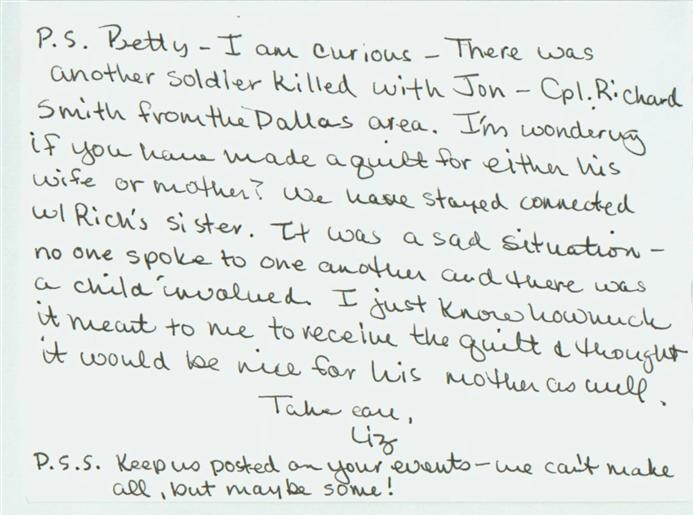 P.S. Betty - I am curious - There was
another soldier killed with Jon - Cpl. Richard
Smith from the Dallas area. I'm wondering
if you have made a quilt for either his
wife or mother? We have stayed connected
w/ Rich's sister. It was a sad situation -
no one spoke to one another and there was
a child involved. I just know how much
it meant to me to receive the quilt & thought
it would be nice for his mother as well.
Take care,
Liz
P.S.S. Keep us posted on your events - we can't make
all, but maybe some!